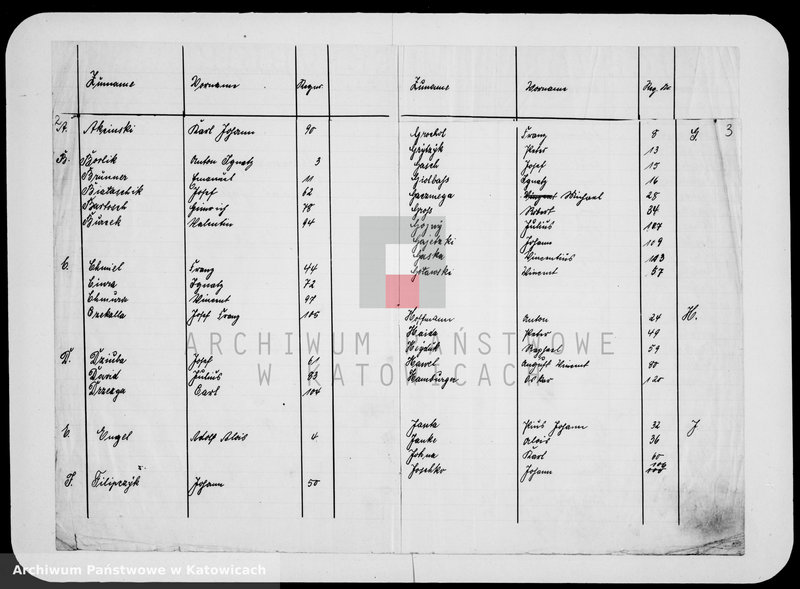 Zuname Vorname Regnr.
2
A. Akzinski Karl Johann 90
B. Borlik Anton Ignatz 3
Brünner Emanuel 11
Bialaschik Josef 62
Bartosch Heinrich 78
Burek Valentin 94
C. Chmiel Franz 44
Ciura Ignatz 72
Chmura Vincent 97
Czekalla Josef Franz 105
D. Dziuba Josef 61
David Julius 83
Drzezga Carl 104
E. Engel Adolf Alois 4
F. Filipczÿk Johann 50
Zuname Vorname Reg. Nr.
3
Franz 8 G.
Peter 13
Gasch Josef 15
Ignatz 16
Michael 28
Groß Robert 34
Gojny Julius 107
Gajetzki Johann 109
Gaska Vincentius 103
Golawski Vincent 57
Hoffmann Anton 24 H.
Haida Peter 49
Raphael 59
Hawel August Vincent 80
Hamburger Oskar 120
Janta Pius Johann 32 J
Janke Alois 36
Johna Karl 60
Joschko Johann 108
ARCHIWUM PAŃSTWOWE
W KATOWICACH
Archiwum Państwowe w Katowicach